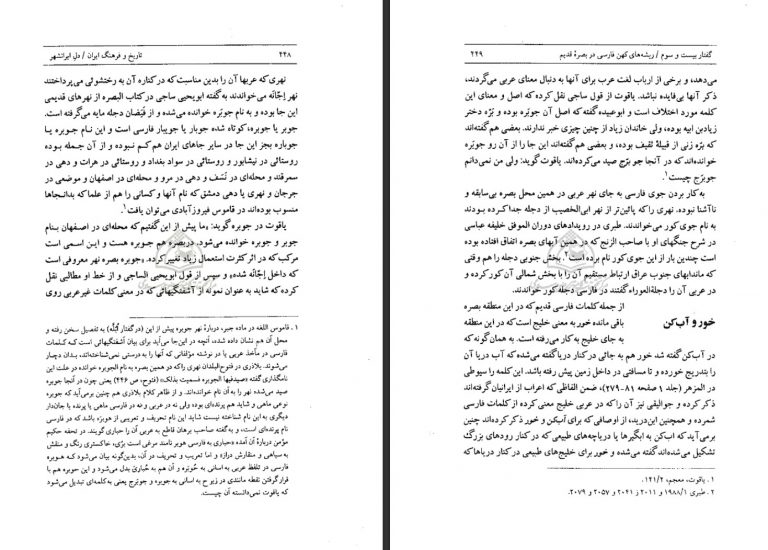 ۲۴۸
تاریخ و فرهنگ ایران / دل ایرانشهر
نهری که عربها آن را بدین مناسبت که در کناره آن به رختشوئی می‌پرداختند
نهر اِجّانَه می‌خواندند به گفته ابویحیی ساجی در کتاب البصره از نهرهای قدیمی
این جا بوده و به نام جوبَره خوانده می‌شده و از فَیَضان دجله مایه می‌گرفته است.
جوبر یا جوبره، کوتاه شده جوبار یا جویبار فارسی است و این نام جوبره یا
جوباره بجز این جا در سایر جاهای ایران هم کم نبوده و از آن جمله بوده
روستائی در نیشابور و روستائی در سواد بغداد و روستائی در هرات و دهی در
سمرقند و محله‌ای در نَسَف و دهی در مرو و محله‌ای در اصفهان و موضعی در
جرجان و نهری یا دهی دمشق که نام آنها و کسانی را هم از علما که بدانجاها
منسوب بوده‌اند در قاموس فیروزآبادی می‌توان یافت.۱
یاقوت در جوبره گوید: «ما پیش از این گفتیم که محله‌ای در اصفهان بنام
جوبر و جوبره خوانده می‌شود. در بصره هم جوبره هست و این اسمی است
مرکب که در اثر کثرت استعمال زیاد تغییر کرده. «جوبره بصره نهر معروفی است
که داخل اِجّانَه شده» و سپس از قول ابویحیی الساجی و از خط او مطالبی نقل
کرده که شاید به عنوان نمونه از آشفتگیهائی که در معنی کلمات غیرعربی روی
۱ . قاموس اللغه در ماده جبر. دربارهٔ نهر جوبره پیش از این (در گفتار اُبُلّه) به تفصیل سخن رفته و
محل آن هم نشان داده شده، آنچه در این‌جا می‌آید برای بیان آشفتگیهائی است کـه کـلمات
فارسی در مآخذ عربی یا در نوشته مؤلفانی که آنها را به درستی نمی‌شناخته‌اند، بدان دچار
می‌شوند. بلاذری در فتوح‌البلدان نهری راکه در همین بصره به‌نام الجوبره خوانده در علت این
نامگذاری گفته «صیدفیها الجوبره فسمیت بذلک» (فتوح، ص ۴۴۶) یعنی چون در آنجا جوبره
صید می‌شده آنجا را به آن نام خوانده‌اند. و از ظاهر کلام بلاذری هم چنین برمی‌آید که جوبره
نوعی ماهی و شاید هم پرنده‌ای بوده؛ ولی نه در عربی و نه در فارسی ماهی یا پرنده یا جان‌دار
دیگری به این نام شناخته نیست شاید این نام تحریف و تعریبی از هوبره باشد که در فارسی
نام پرنده‌ای است، و به‌گفته صاحب برهان قاطع به عربی آن را حباری گویند. در تحفه حکیم
مؤمن دربارهٔ آن آمده «حباری به فارسی هوبر نامند مرغی است برّی، خاکستری رنگ و منقش
به سیاهی و منقارش دراز» و اما تعریب و تحریف در آن، بدین‌گونه بیان می‌شود کـه هـوبره
فارسی در تلفظ عربی به آسانی به حُوبَره و آن هم به حُباریٰ بدل می‌شود و این حوبره هم با
قرار گرفتن نقطه مانندی در زیر ح به آسانی به جوبره و جوبَرج یعنی به‌کلمه‌ای تبدیل می‌شود
که یاقوت نمی‌دانسته آن چیست.
گفتار بیست و سوم / ریشه‌های کهن فارسی در بصرهٔ قدیم
۲۴۹
می‌دهد، و برخی از ارباب لغت عرب برای آنها به دنبال معنای عربی می‌گردند،
ذکر آنها بی‌فایده نباشد. یاقوت از قول ساجی نقل کرده که اصل و معنای این
کلمه مورد اختلاف است و ابوعبیده گفته که اصل آن جوبَره بوده و بَرّه دختر
زیادبن ابیه بوده، ولی خاندان زیاد از چنین چیزی خبر ندارند. بعضی هم گفته‌اند
که برّه زنی از قبیلهٔ ثقیف بوده، و بعضی هم گفته‌اند این جا را از آن رو جوبَره
خوانده‌اند که در آنجا جو برّج صید می‌کرده‌اند. یاقوت گوید: ولی من نمی‌دانم
جوبَرّج چیست؟۱
به کار بردن جوی فارسی به جای نهر عربی در همین محل بصره بی‌سابقه و
ناآشنا نبوده. نهری را که پائین‌تر از نهر ابی‌الخصیب از دجله جدا کرده بودند
به نام جوی کور می‌خواندند. طبری در رویدادهای دوران الموفق خلیفه عباسی
در شرح جنگهای او با صاحب الزنج که در همین آبهای بصره اتفاق افتاده بوده
است چندین بار از این جوی کور نام برده است.۲ بخش جنوبی دجله را هم وقتی
که ماندابهای جنوب عراق ارتباط مستقیم آن را با بخش شمالی آن کور کرده و
در عربی آن را دجلة‌العوراء گفتند در فارسی دجله کور خواندند.
خور و آب‌کن
از جمله کلمات فارسی قدیم که در این منطقه بصره
باقی مانده خور به معنی خلیج است که در این منطقه
به جای خلیج به کار می‌رفته است. به همان‌گونه که
در آب‌کن گفته شد، خور هم به جائی در کنار دریا گفته می‌شده که آب دریا آن
را بتدریج خورده و تا مسافتی در داخل زمین پیش رفته باشد. این کلمه را سیوطی
در المزهر (جلد ۱ صفحه ۸۱-۲۷۹)، ضمن الفاظی که اعراب از ایرانیان گرفته‌اند
ذکر کرده و جوالیقی نیز آن را که در عربی خلیج معنی کرده از کلمات فارسی
شمرده و همچنین ابن‌درید، از اوصافی که برای آب‌کن و خور ذکر کرده‌اند چنین
برمی‌آید که آب‌کن به ابگیرها یا دریاچه‌های طبیعی که در کنار رودهای بزرگ
تشکیل می‌شده‌اند گفته می‌شده و خور برای خلیج‌های طبیعی در کنار دریاها که
۱ . یاقوت، معجم، ۱۴۱/۲.
۲ . طبری ۱۹۸۸/۱ و ۲۰۱۱ ز ۲۰۴۱ و ۲۰۵۷ و ۲۰۷۹.